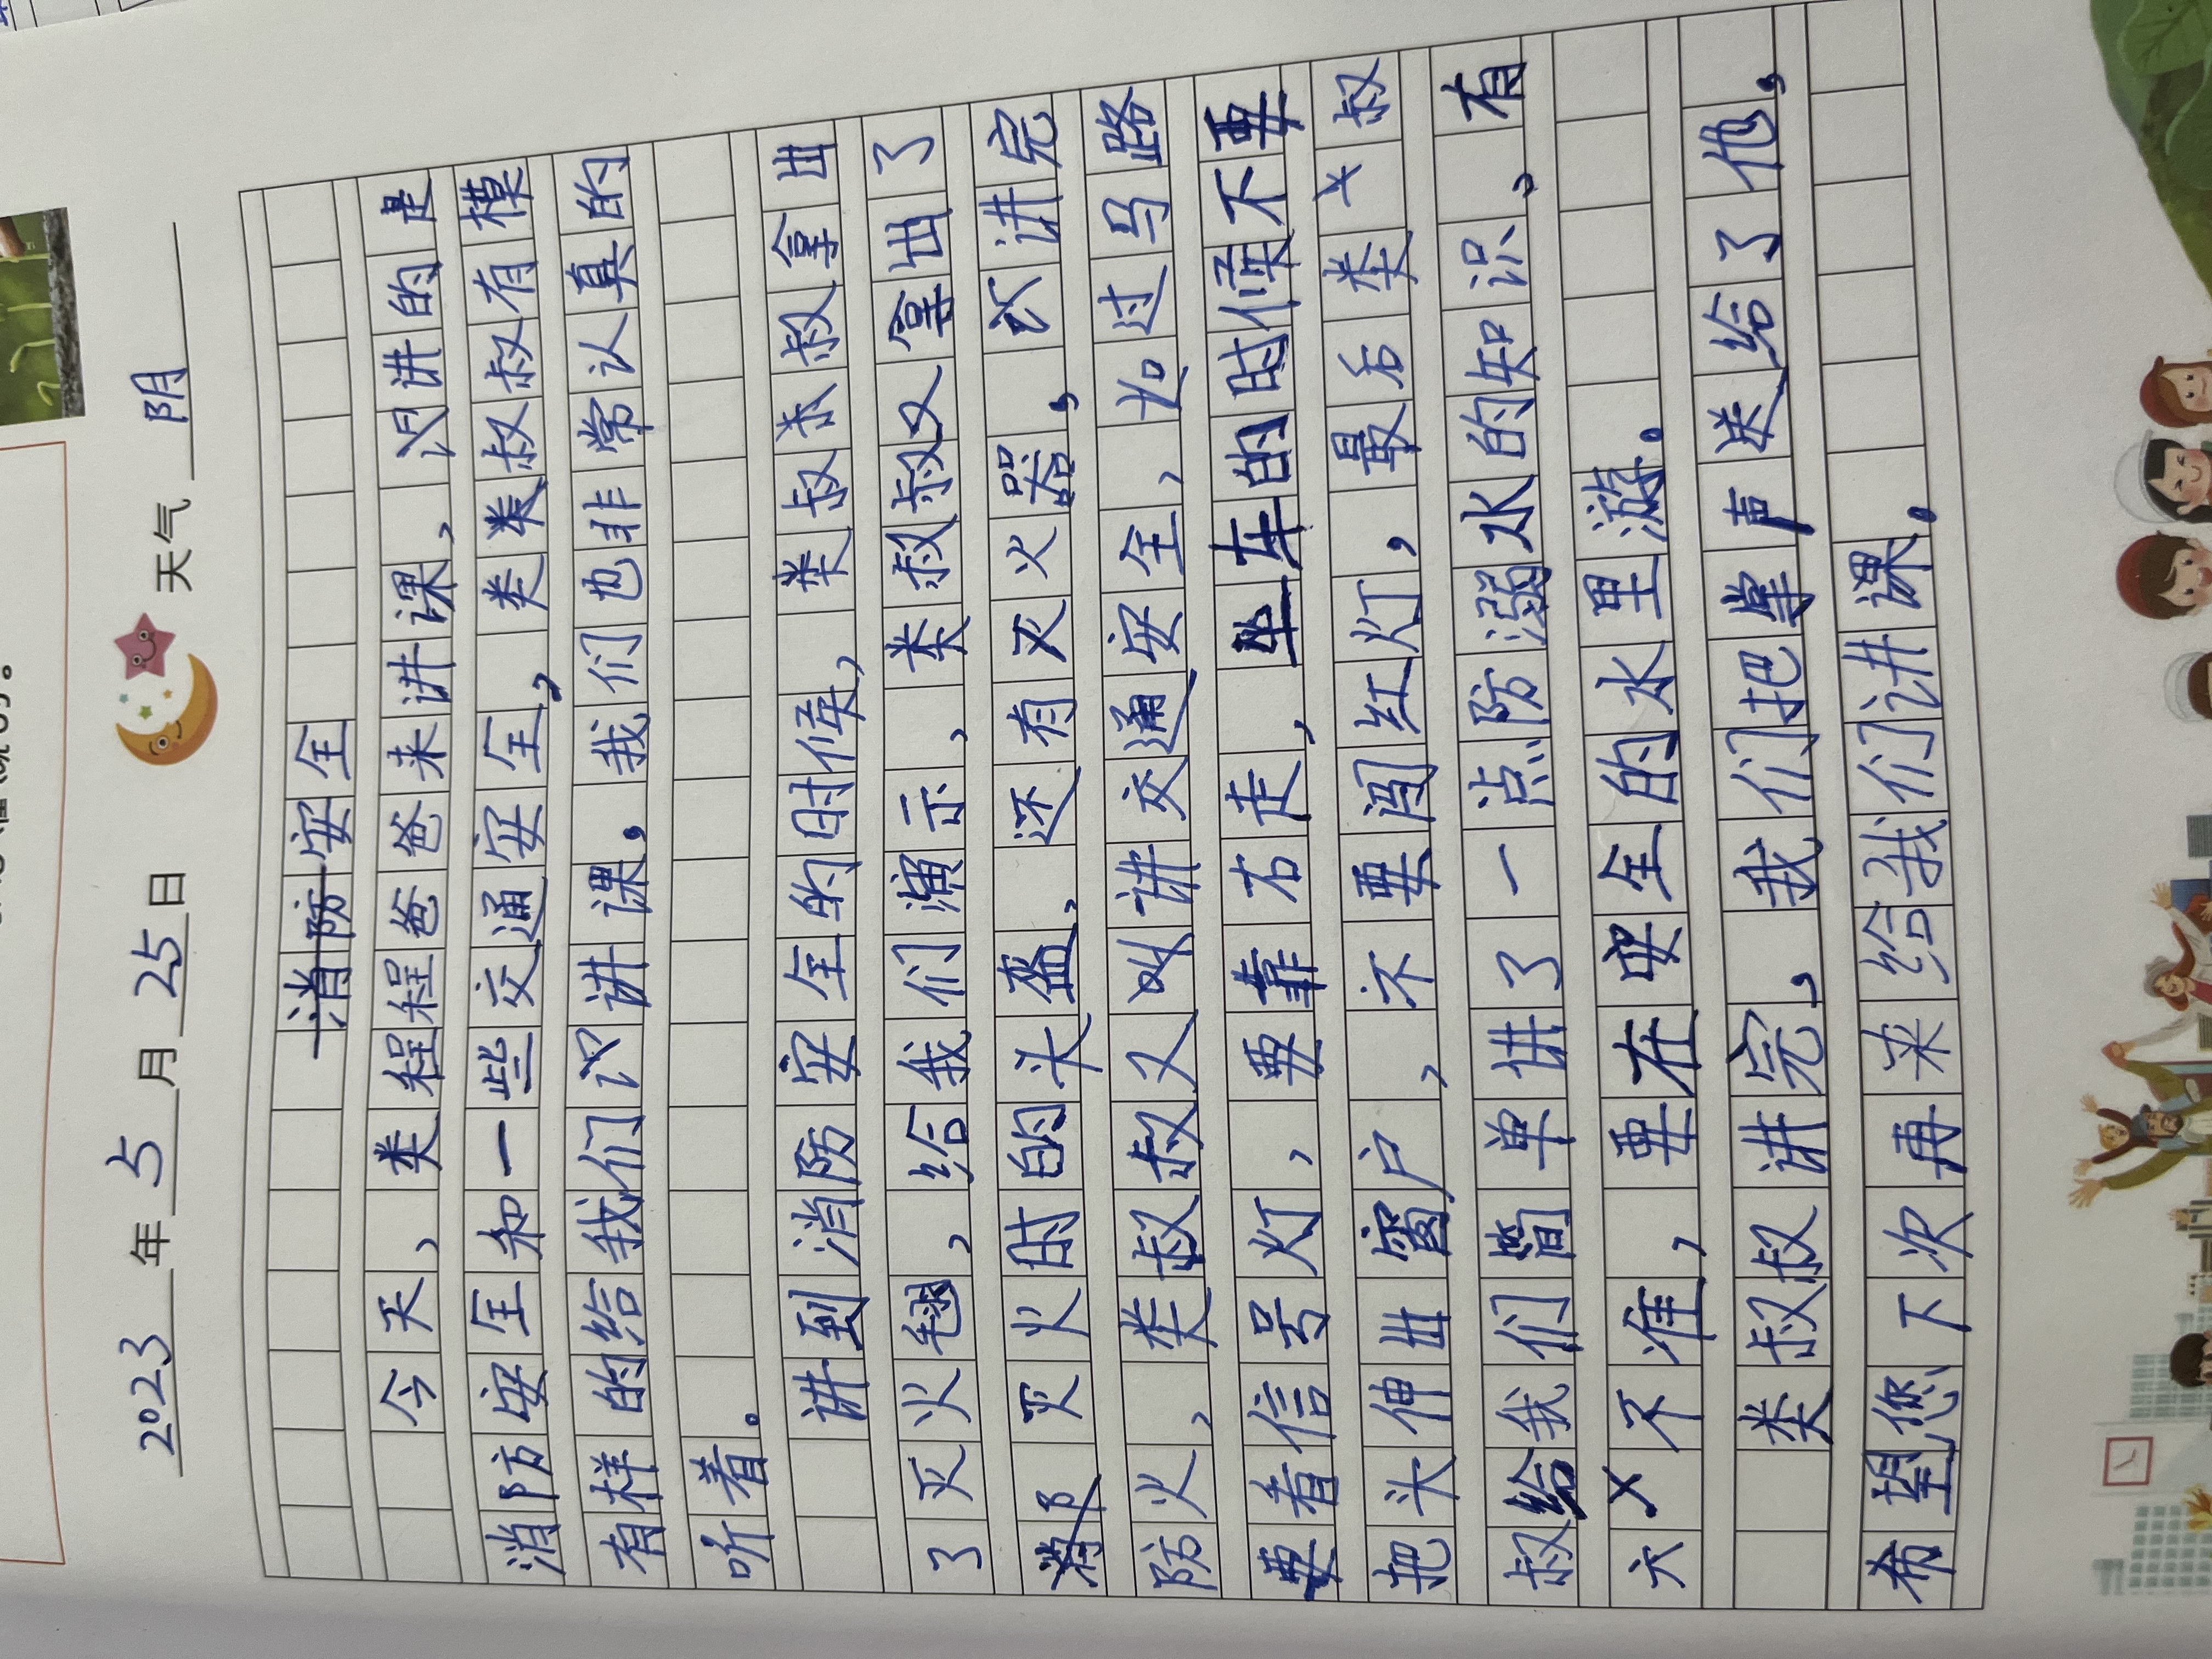 2023年5月25日 天气 阴
消防安全
今天，娄程程爸爸来讲课，讲的是
消防安全和一些交通安全，娄娄叔叔有模
有样的给我们讲课，我们也非常认真的
听着。
讲到消防安全的时候，娄叔叔拿出
了灭火毯，给我们演示，娄叔叔又拿出了
灭火时的头盔，还有灭火器，讲完
防火，娄叔叔又叫讲交通安全，过马路
要看信号灯，要靠右走，坐车的时候不要
把头伸出窗户，不要闯红灯，最后娄叔
叔给我们简单讲了一点防溺水的知识，有
六不准，要在安全的水里游。
娄叔叔讲完，我们把掌声送给了他，
希望您下次再来给我们讲课。